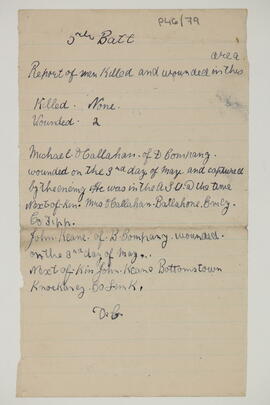 P46/79
5th Batt
area
Report of men Killed and wounded in this
Killed. None.
Wounded. 2
Michael O Callahan. of D Company.
wounded on the 3rd day of May and captured
by the enemy. He was in the A.S.U. the time
Next of Kin. Mrs O Callahan. Ballahone. Emly.
Co Tipp.
John Keane. of B Company. wounded.
on the 3rd day of May..
Next of Kin John Keane Bottomstown
Knockaney Co Limk.